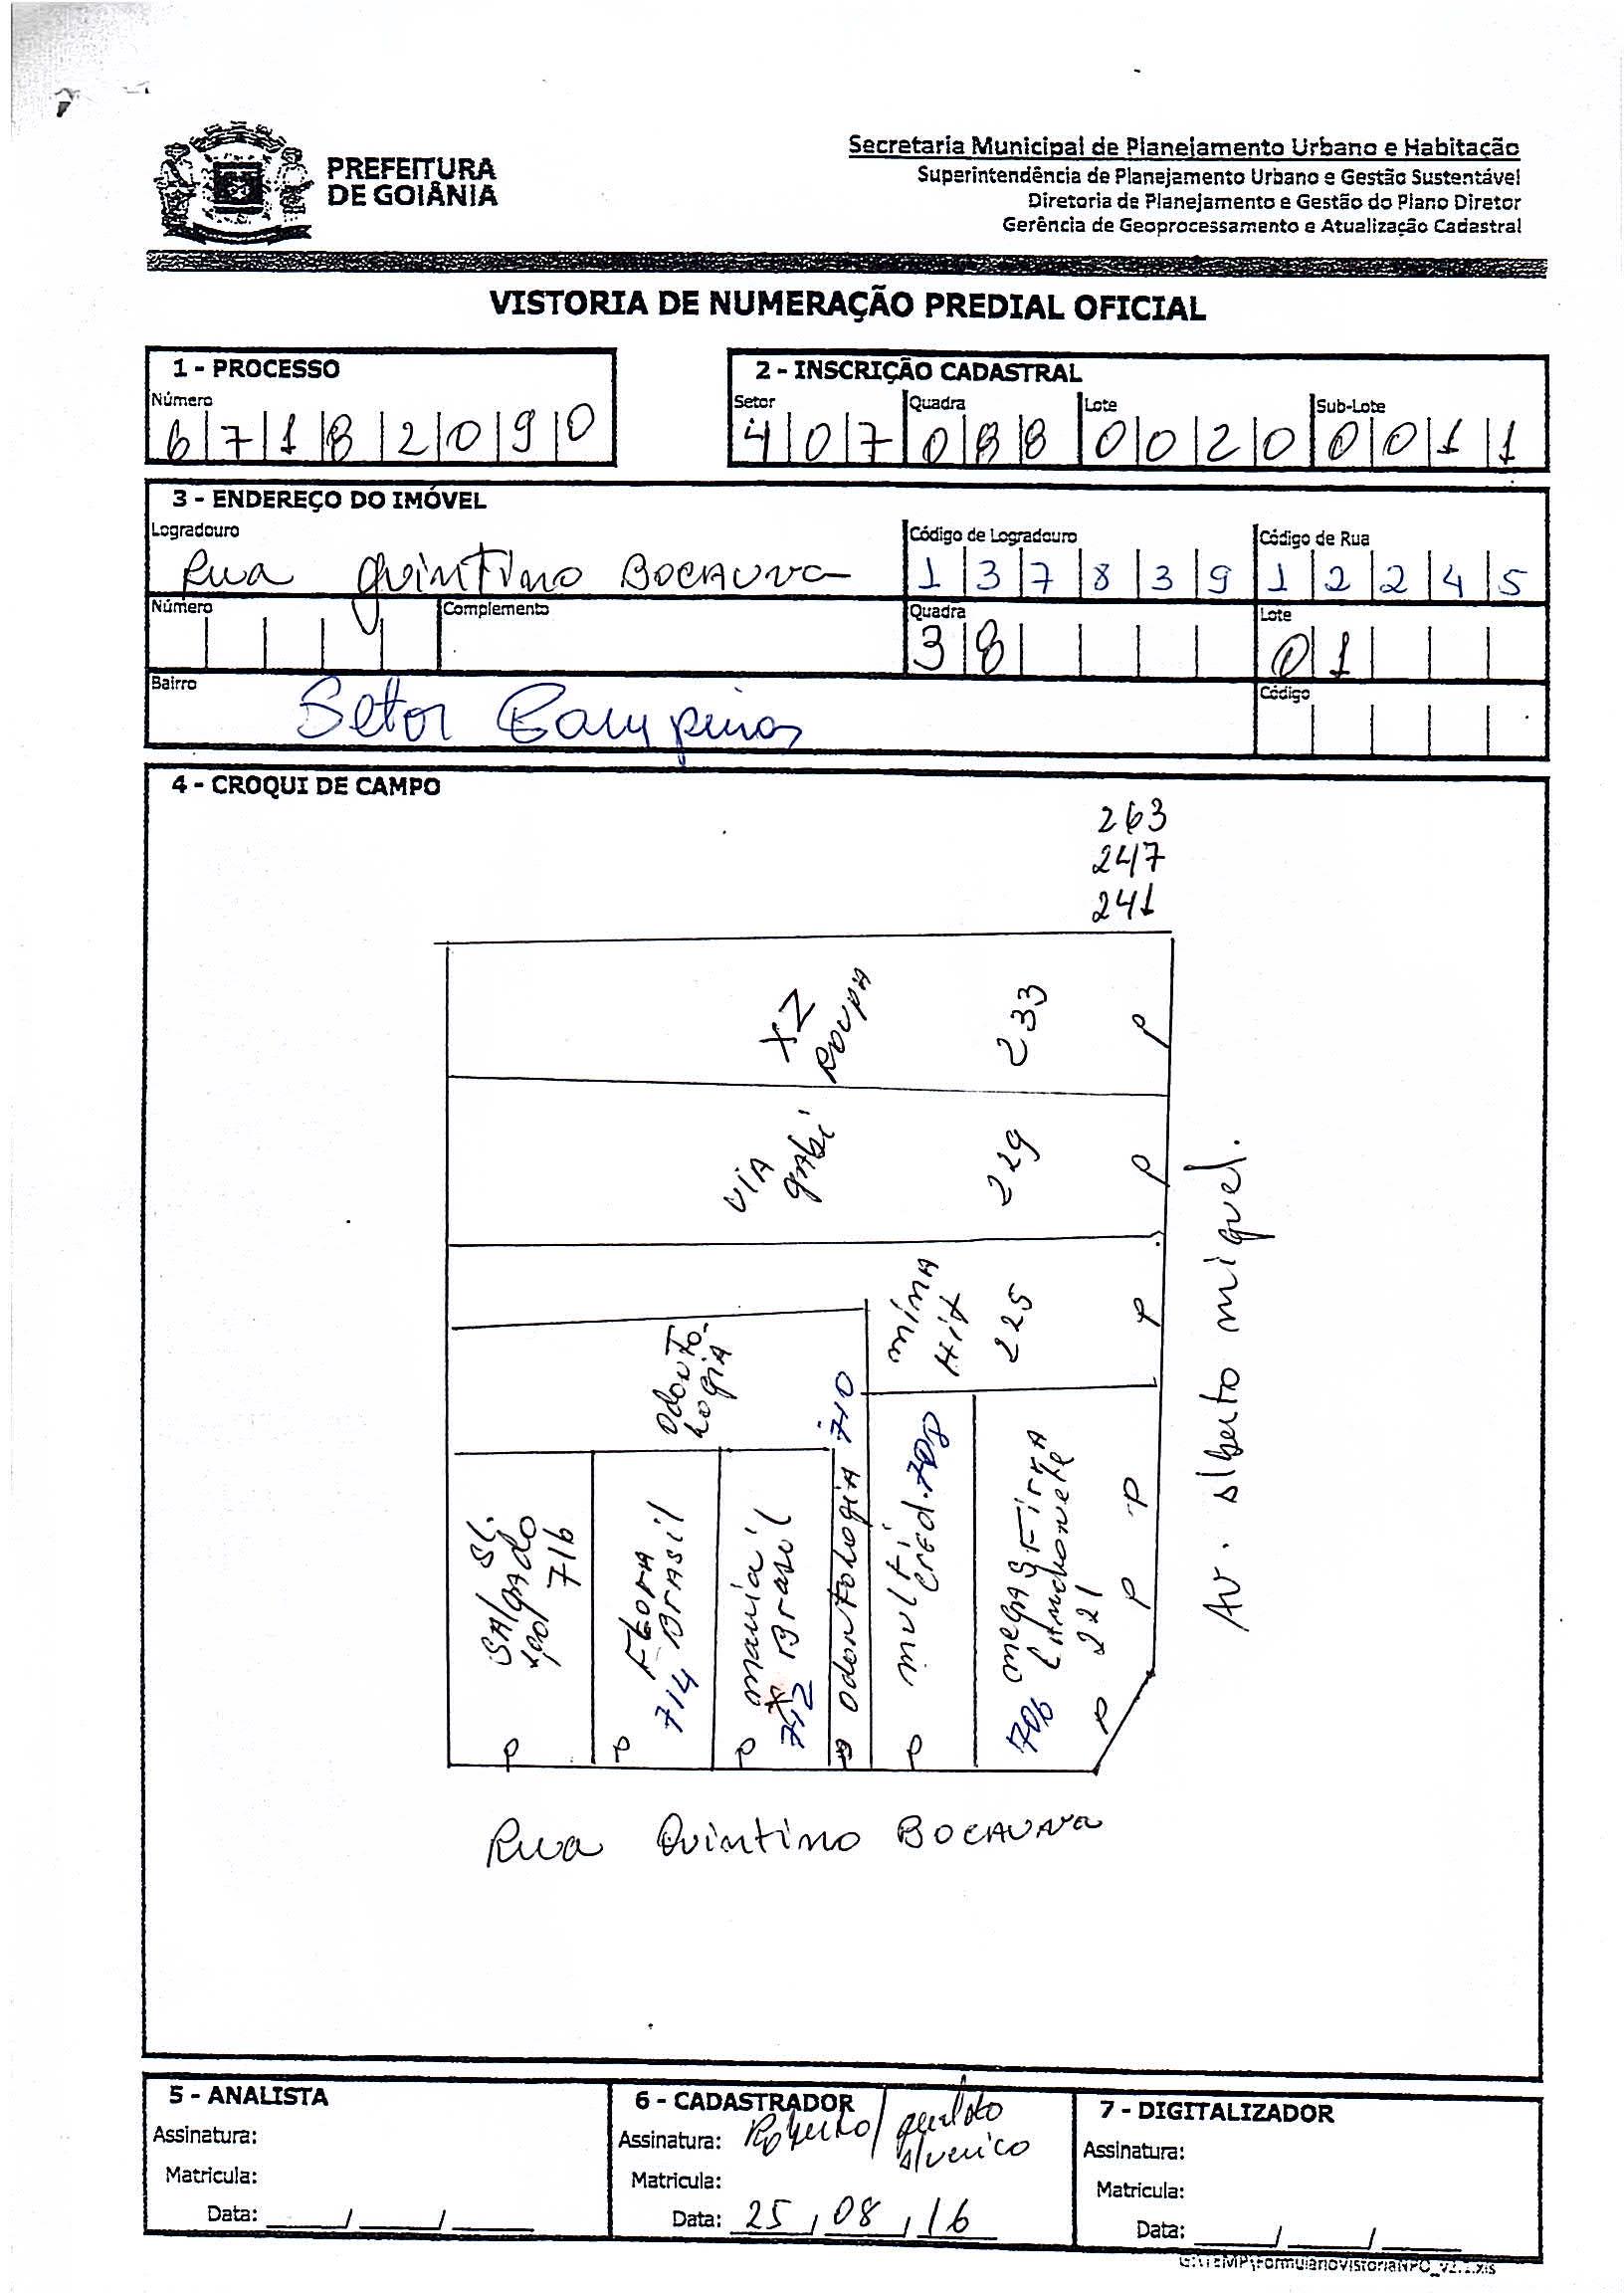 PREFEITURA
DE GOIÂNIA
Secretaria Municipal de Planejamento Urbano e Habitação
Superintendência de Planejamento Urbano e Gestão Sustentável
Diretoria de Planejamento e Gestão do Plano Diretor
Gerência de Geoprocessamento e Atualização Cadastral
VISTORIA DE NUMERAÇÃO PREDIAL OFICIAL
1 - PROCESSO
Número
6 7 1 8 2 0 9 0
2 - INSCRIÇÃO CADASTRAL
Setor Quadra Lote Sub-Lote
4 0 7 0 8 8 0 0 2 0 0 0 1 1
3 - ENDEREÇO DO IMÓVEL
Logradouro Código de Logradouro Código de Rua
Rua Quintino BOCAUVA 1 3 7 8 3 9 1 2 2 4 5
Número Complemento Quadra Lote
3 8 0 1
Bairro Código
Setor Campinas
4 - CROQUI DE CAMPO
263
247
241
XZ
ROUPA
233
P
VIA
gabi
229
P
mina
Hit
225
P
odonto-
logia
SL.
SALgado
716
P
FLORA
Brasil
714
P
mania
Brasil
712
P
odontologia 710
P
multi
cred. 708
P
mega Firra
Lanchonete
221
706
P
P
P
Av. alberto miguel.
Rua Quintino BOCAUVA
5 - ANALISTA
Assinatura:
Matricula:
Data: ____/____/____
6 - CADASTRADOR
Assinatura: Roberto/
Matricula:
Data: 25/08/16
7 - DIGITALIZADOR
Assinatura:
Matricula:
Data: ____/____/____
G:\TEMP\FormularioVistoriaNPO_v2.1.xls